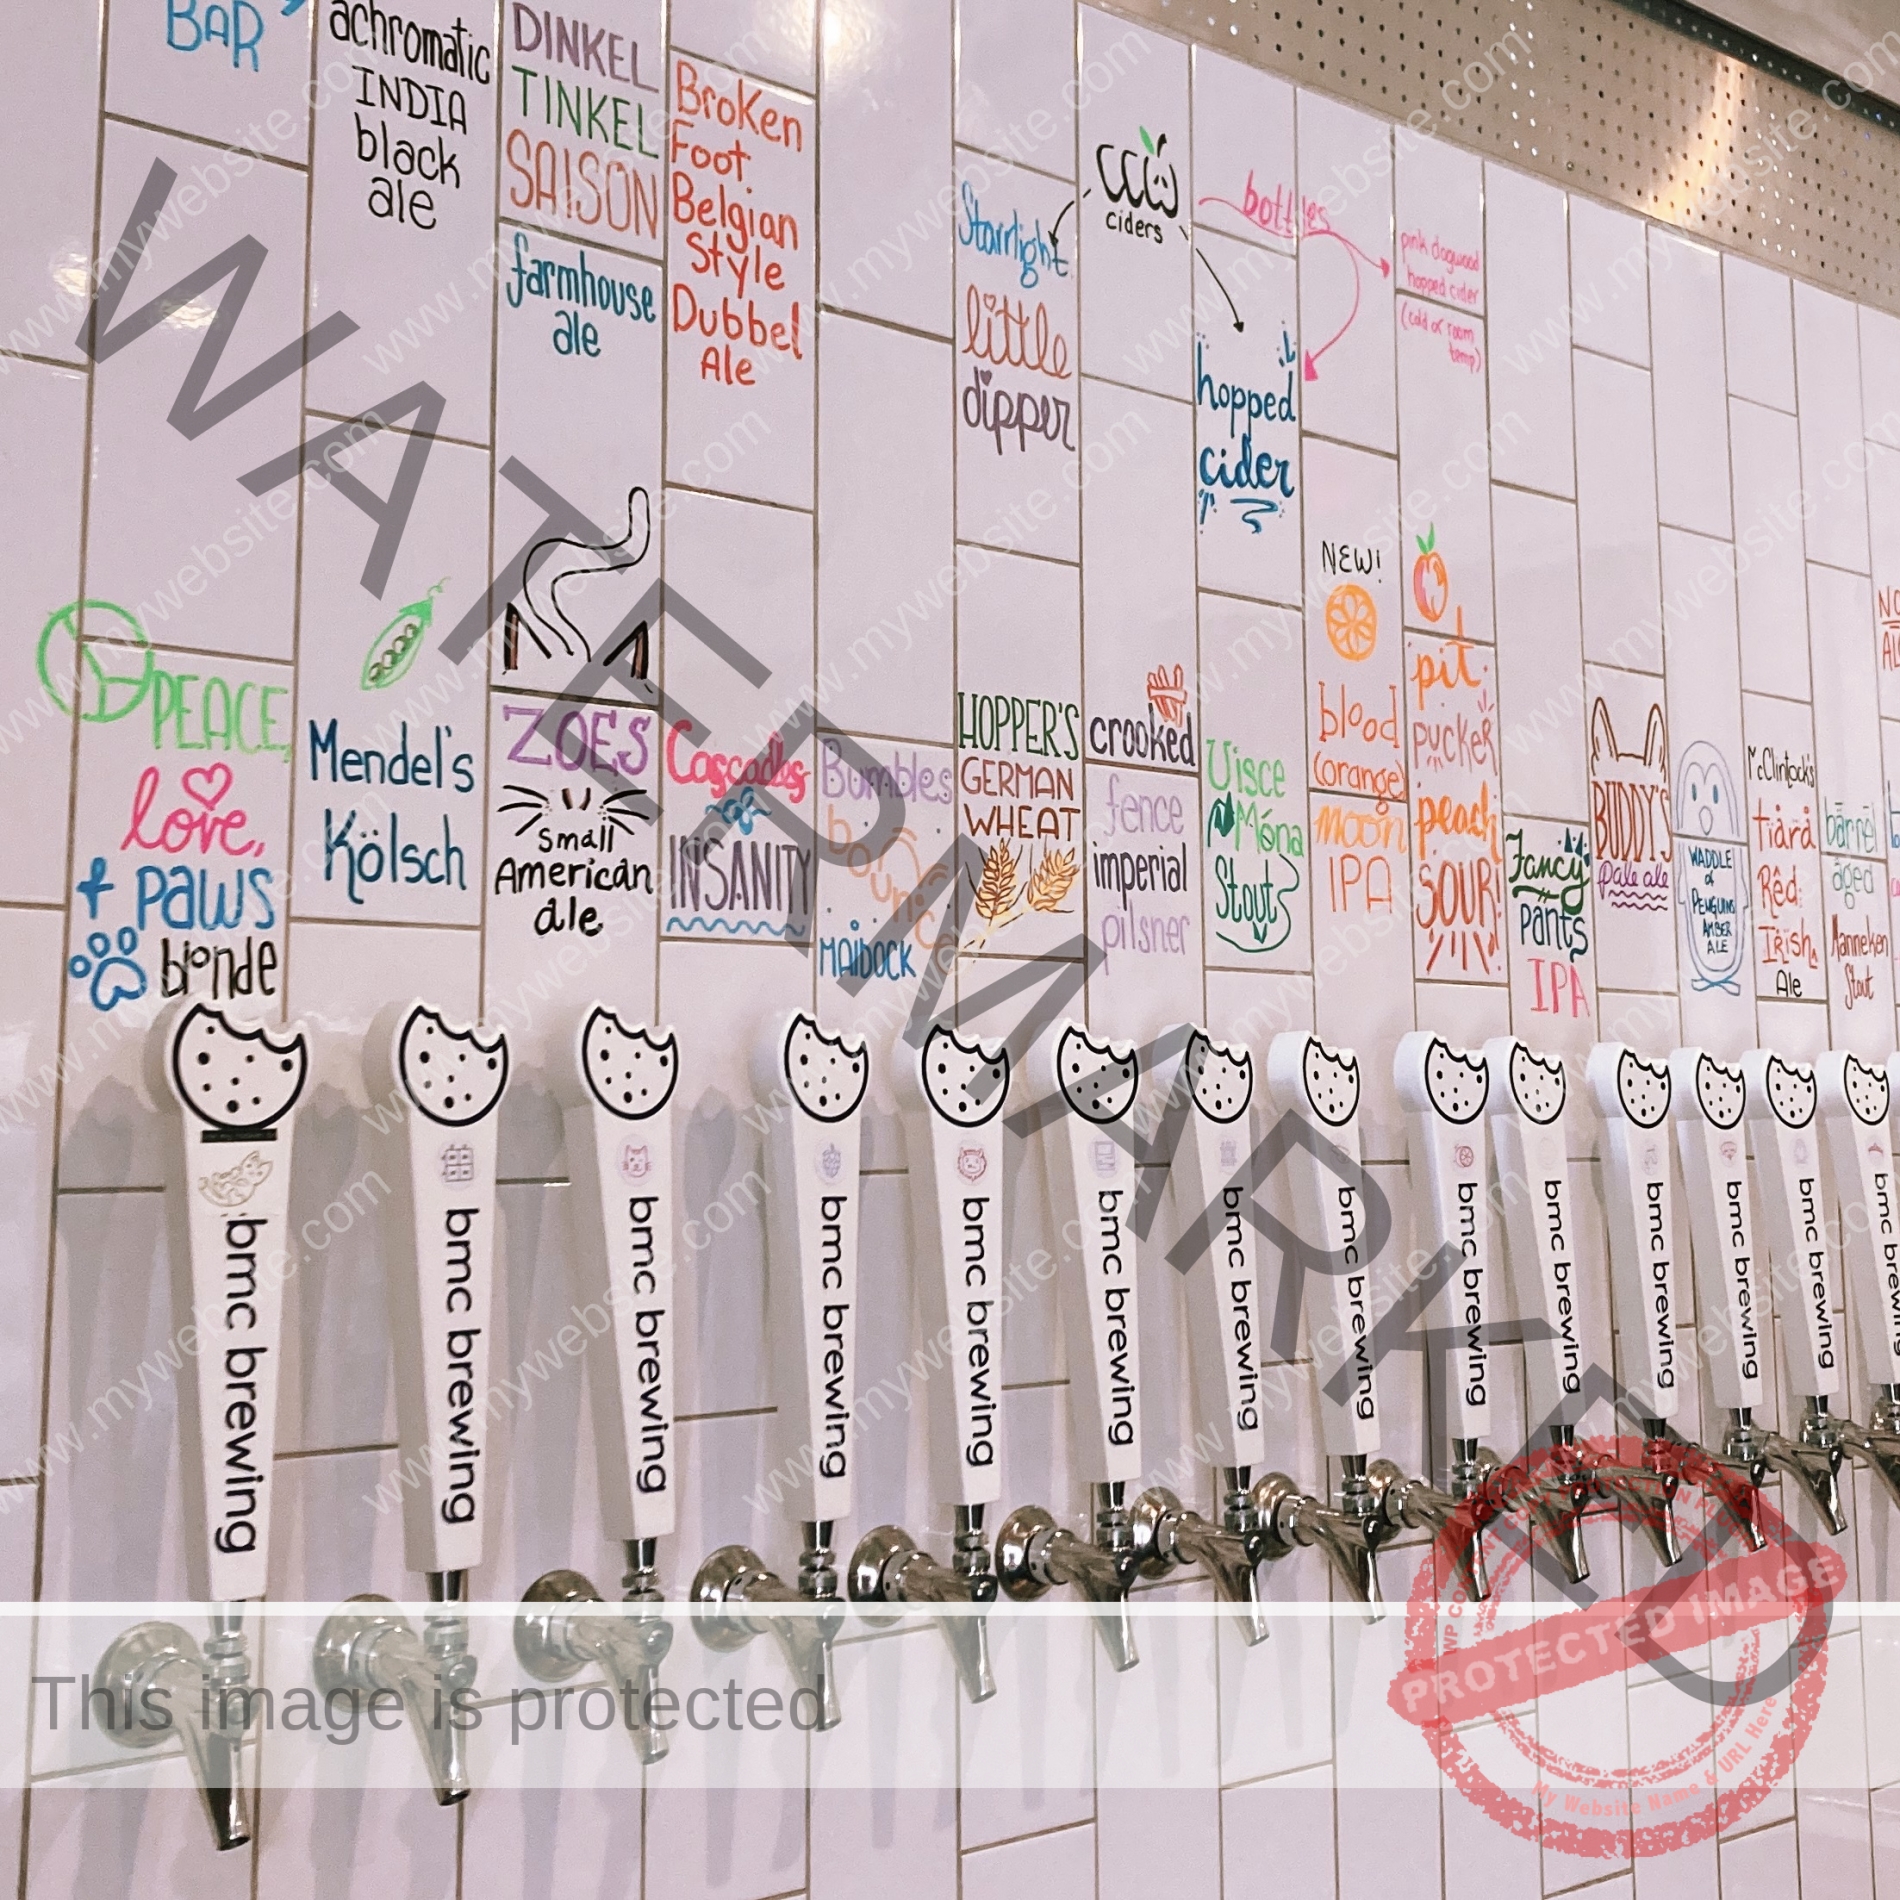 BAR
achromatic
INDIA
black
ale
DINKEL
TINKEL
SAISON
farmhouse
ale
Broken
Foot
Belgian
Style
Dubbel
Ale
Starrlight
little
dipper
ccw
ciders
bottles
pink dogwood
hopped cider
(cold or room
temp)
hopped
cider
PEACE,
love,
+ paws
blonde
Mendel's
Kölsch
ZOES
small
American
ale
Cascades
INSANITY
Bumbles
bounce
MAIBOCK
HOPPER'S
GERMAN
WHEAT
crooked
fence
imperial
pilsner
Uisce
Móna
Stout
NEW!
blood
(orange)
moon
IPA
pit
pucker
peach
SOUR!
Fancy
pants
IPA
BUDDY'S
pale ale
WADDLE
of
PENGUINS
AMBER
ALE
McClintock's
tiara
Red
Irish
Ale
barrel
aged
Manneken
Stout
bmc brewing
bmc brewing
bmc brewing
bmc brewing
bmc brewing
bmc brewing
bmc brewing
bmc brewing
bmc brewing
bmc brewing
bmc brewing
bmc brewing
bmc brewing
bmc brewing
WATERMARKED
www.mywebsite.com
This image is protected
WP CONTENT COPY PROTECTION PLUGIN
PROTECTED IMAGE
My Website Name & URL Here